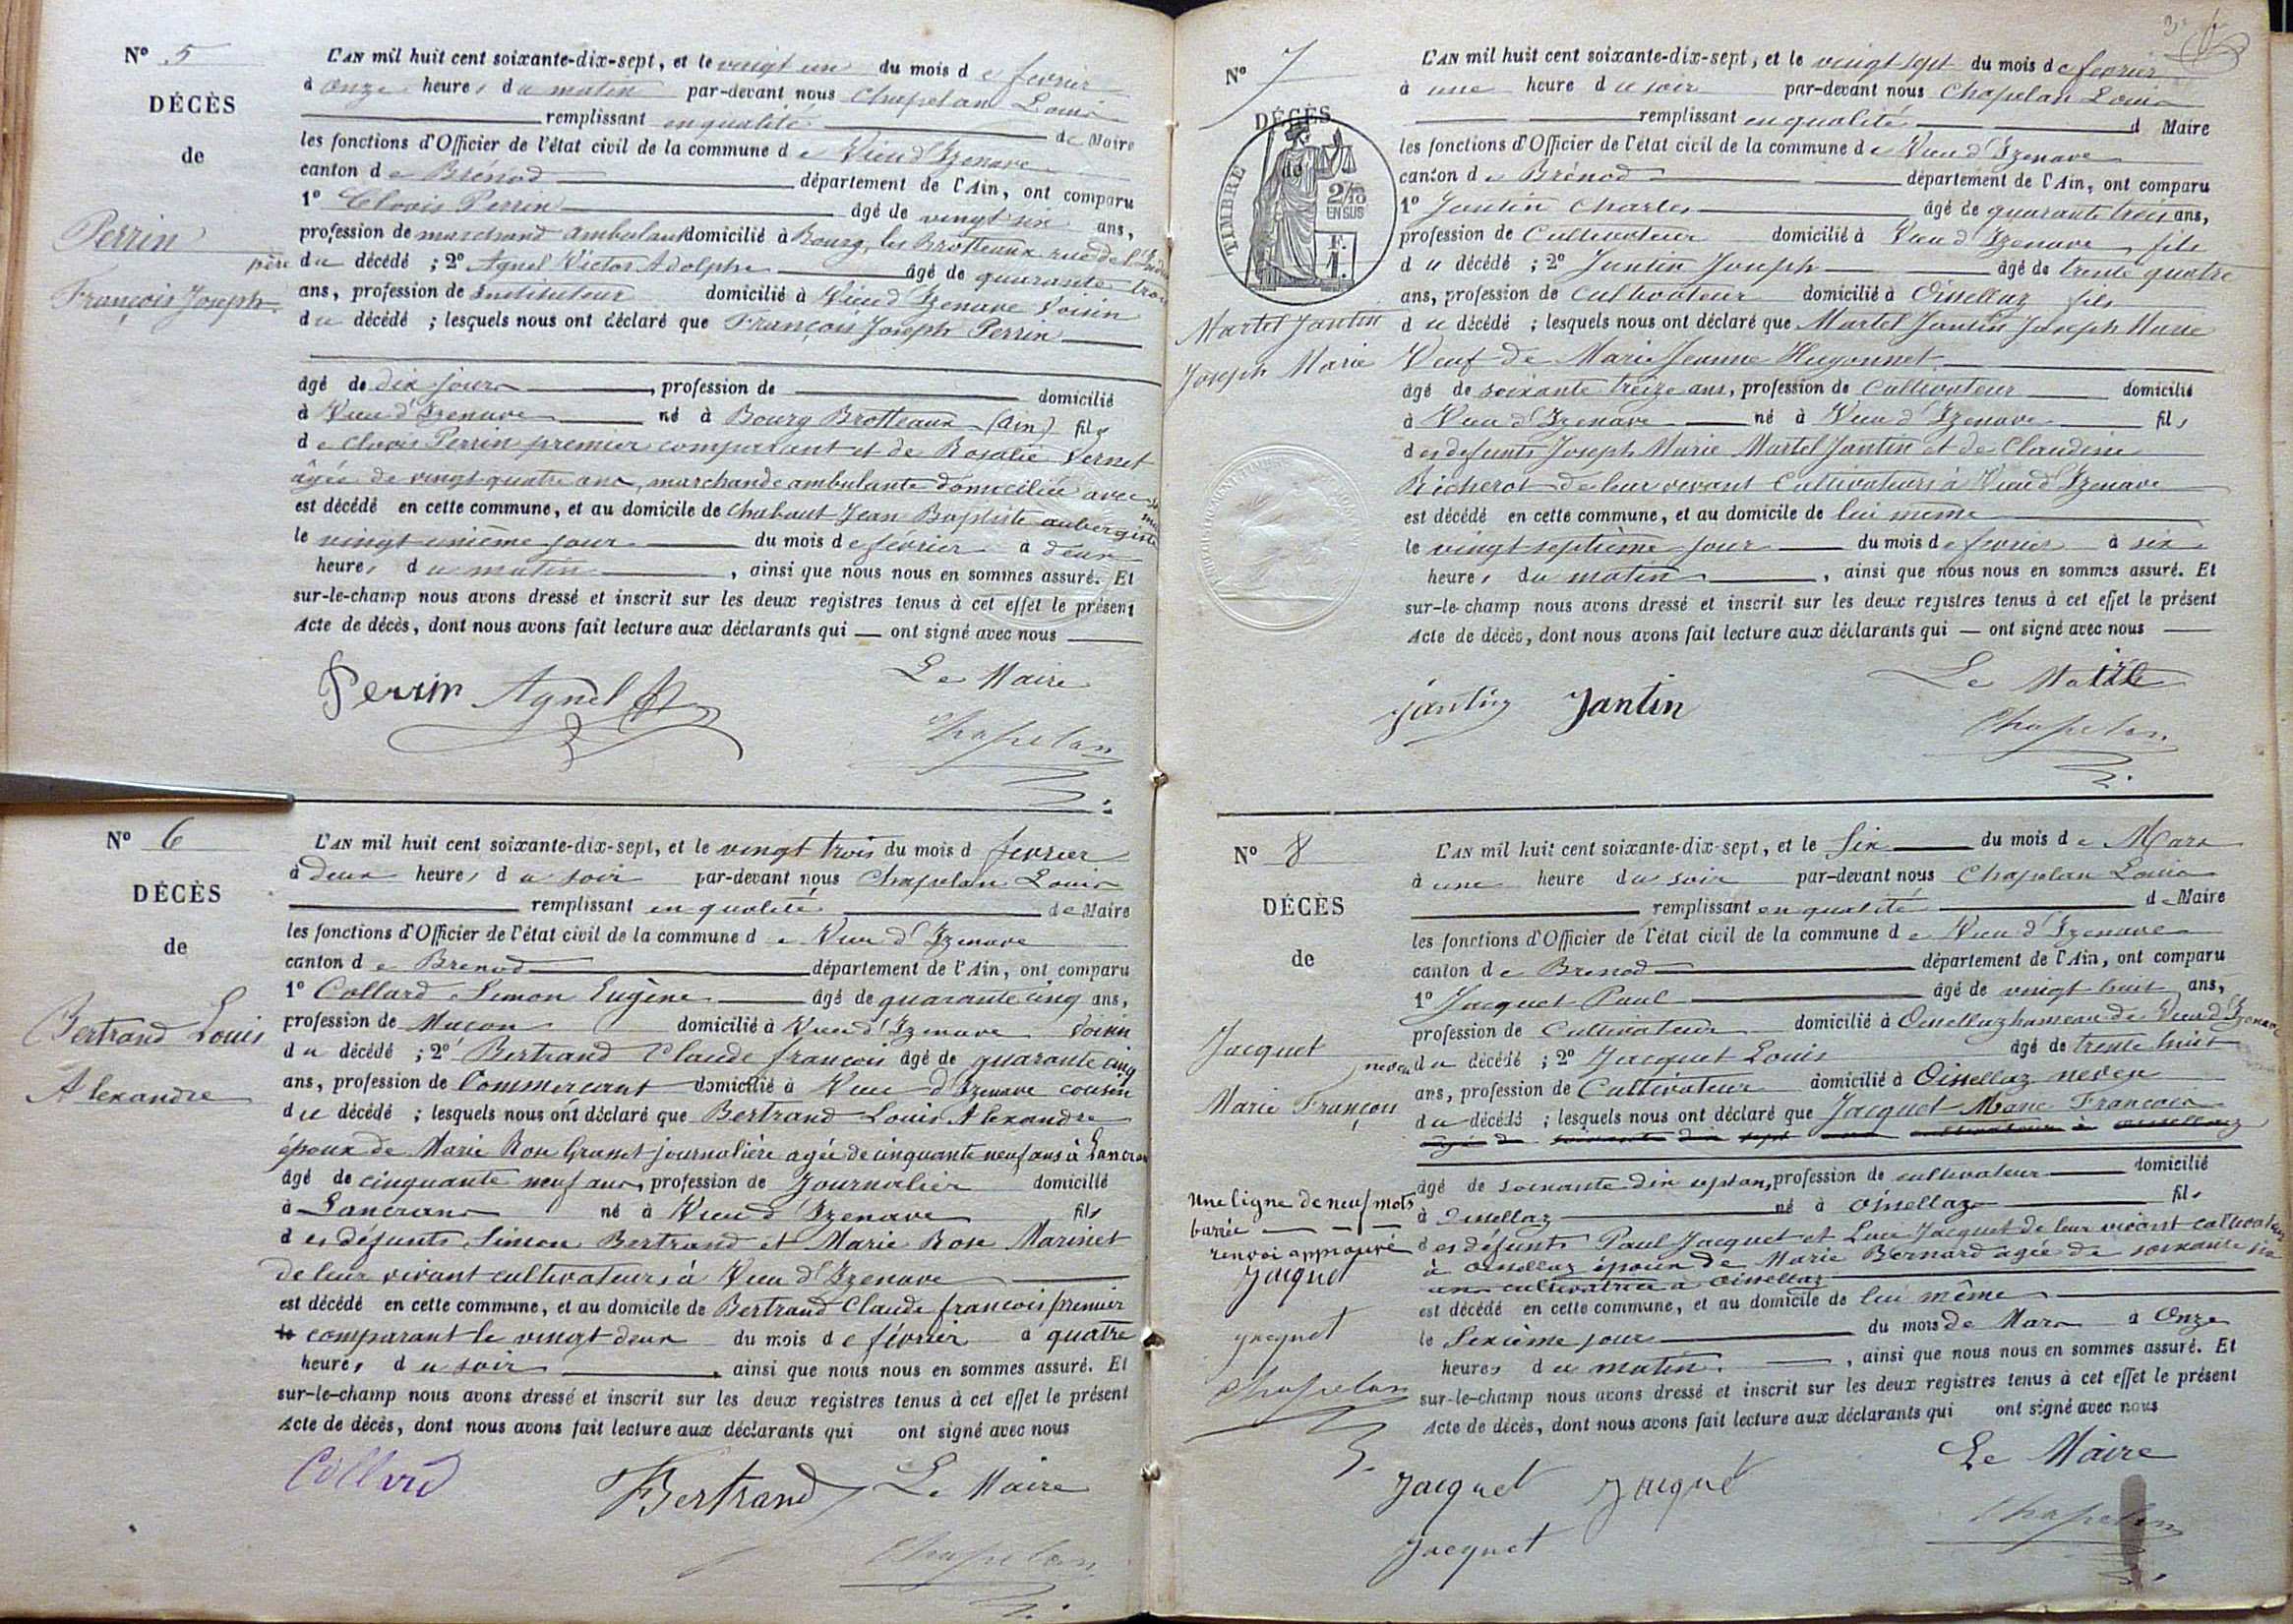 N° 5
DÉCÈS
de
Perrin
François Joseph
L'AN mil huit cent soixante-dix-sept, et le vingt un du mois de fevrier
à onze heures du matin par-devant nous Chapelan Louis
remplissant en qualité de Maire
les fonctions d'Officier de l'état civil de la commune de Vieu d'Izenave
canton de Brénod département de l'Ain, ont comparu
1° Clovis Perrin âgé de vingt six ans,
profession de marchand ambulant domicilié à Bourg, les Brotteaux rue de
père du décédé ; 2° Agnel Victor Adolphe âgé de quarante trois
ans, profession de Instituteur domicilié à Vieu d'Izenave Voisin
du décédé ; lesquels nous ont déclaré que François Joseph Perrin
âgé de dix jours, profession de domicilié
à Vieu d'Izenave né à Bourg Brotteaux (Ain) fils
de Clovis Perrin premier comparant et de Rosalie Vernet
âgée de vingt quatre ans, marchande ambulante domiciliée avec son mari
est décédé en cette commune, et au domicile de Chabaut Jean Baptiste aubergiste
le vingt unième jour du mois de fevrier à deux
heures du matin, ainsi que nous nous en sommes assuré. Et
sur-le-champ nous avons dressé et inscrit sur les deux registres tenus à cet effet le présent
Acte de décès, dont nous avons fait lecture aux déclarants qui — ont signé avec nous
Perrin Agnel Le Maire
Chapelan
N° 6
DÉCÈS
de
Bertrand Louis
Alexandre
L'AN mil huit cent soixante-dix-sept, et le vingt trois du mois d fevrier
à deux heures du soir par-devant nous Chapelan Louis
remplissant en qualité de Maire
les fonctions d'Officier de l'état civil de la commune de Vieu d'Izenave
canton de Brenod département de l'Ain, ont comparu
1° Collard Simon Eugène âgé de quarante cinq ans,
profession de Maçon domicilié à Vieu d'Izenave Voisin
du décédé ; 2° Bertrand Claude françois âgé de quarante cinq
ans, profession de Commerçant domicilié à Vieu d'Izenave cousin
du décédé ; lesquels nous ont déclaré que Bertrand Louis Alexandre
époux de Marie Rose journalière agée de cinquante neuf ans à Lancrans
âgé de cinquante neuf ans, profession de Journalier domicilié
à Lancrans né à Vieu d'Izenave fils
des défunts Simon Bertrand et Marie Rose Marinet
de leur vivant cultivateurs à Vieu d'Izenave
est décédé en cette commune, et au domicile de Bertrand Claude françois premier
comparant le vingt deux du mois de février à quatre
heures du soir, ainsi que nous nous en sommes assuré. Et
sur-le-champ nous avons dressé et inscrit sur les deux registres tenus à cet effet le présent
Acte de décès, dont nous avons fait lecture aux déclarants qui ont signé avec nous
Collard Bertrand Le Maire
Chapelan
N° 7
DÉCÈS
de
TIMBRE
2/10
EN SUS
F.
1.
Martel Jantin
Joseph Marie
L'AN mil huit cent soixante-dix-sept, et le vingt sept du mois de fevrier
à une heure du soir par-devant nous Chapelan Louis
remplissant en qualité d Maire
les fonctions d'Officier de l'état civil de la commune de Vieu d'Izenave
canton de Brénod département de l'Ain, ont comparu
1° Jantin Charles âgé de quarante trois ans,
profession de Cultivateur domicilié à Vieu d'Izenave fils
du décédé ; 2° Jantin Joseph âgé de trente quatre
ans, profession de cultivateur domicilié à Oissellaz fils
du décédé ; lesquels nous ont déclaré que Martel Jantin Joseph Marie
Veuf de Marie Jeanne Hugonnet
âgé de soixante treize ans, profession de Cultivateur domicilié
à Vieu d'Izenave né à Vieu d'Izenave fils
des defunts Joseph Marie Martel Jantin et de Claudine
Richerot de leur vivant Cultivateurs à Vieu d'Izenave
est décédé en cette commune, et au domicile de lui meme
le vingt septième jour du mois de fevrier à six
heures du matin, ainsi que nous nous en sommes assuré. Et
sur-le-champ nous avons dressé et inscrit sur les deux registres tenus à cet effet le présent
Acte de décès, dont nous avons fait lecture aux déclarants qui — ont signé avec nous
Jantin Jantin Le Maire
Chapelan
N° 8
DÉCÈS
de
Jacquet
Marie François
Une ligne de neuf mots
barrée
renvoi approuvé
Jacquet
Jacquet
Chapelan
L'AN mil huit cent soixante-dix-sept, et le Six du mois de Mars
à une heure du soir par-devant nous Chapelan Louis
remplissant en qualité de Maire
les fonctions d'Officier de l'état civil de la commune de Vieu d'Izenave
canton de Brenod département de l'Ain, ont comparu
1° Jacquet Paul âgé de vingt huit ans,
profession de Cultivateur domicilié à Oissellaz hameau de Vieu d'Izenave
neveu du décédé ; 2° Jacquet Louis âgé de trente huit
ans, profession de Cultivateur domicilié à Oissellaz neveu
du décédé ; lesquels nous ont déclaré que Jacquet Marie François
agé de soixante dix sept ans cultivateur à oissellaz
âgé de soixante dix sept ans, profession de cultivateur domicilié
à Oissellaz né à Oissellaz fils
des défunts Paul Jacquet et Jacquet de leur vivant cultivateurs
à Oissellaz époux de Marie Bernard agée de soixante six
ans cultivatrice à Oissellaz
est décédé en cette commune, et au domicile de lui même
le Sixième jour du mois de Mars à Onze
heures du matin, ainsi que nous nous en sommes assuré. Et
sur-le-champ nous avons dressé et inscrit sur les deux registres tenus à cet effet le présent
Acte de décès, dont nous avons fait lecture aux déclarants qui ont signé avec nous
Jacquet Jacquet Le Maire
Jacquet Chapelan